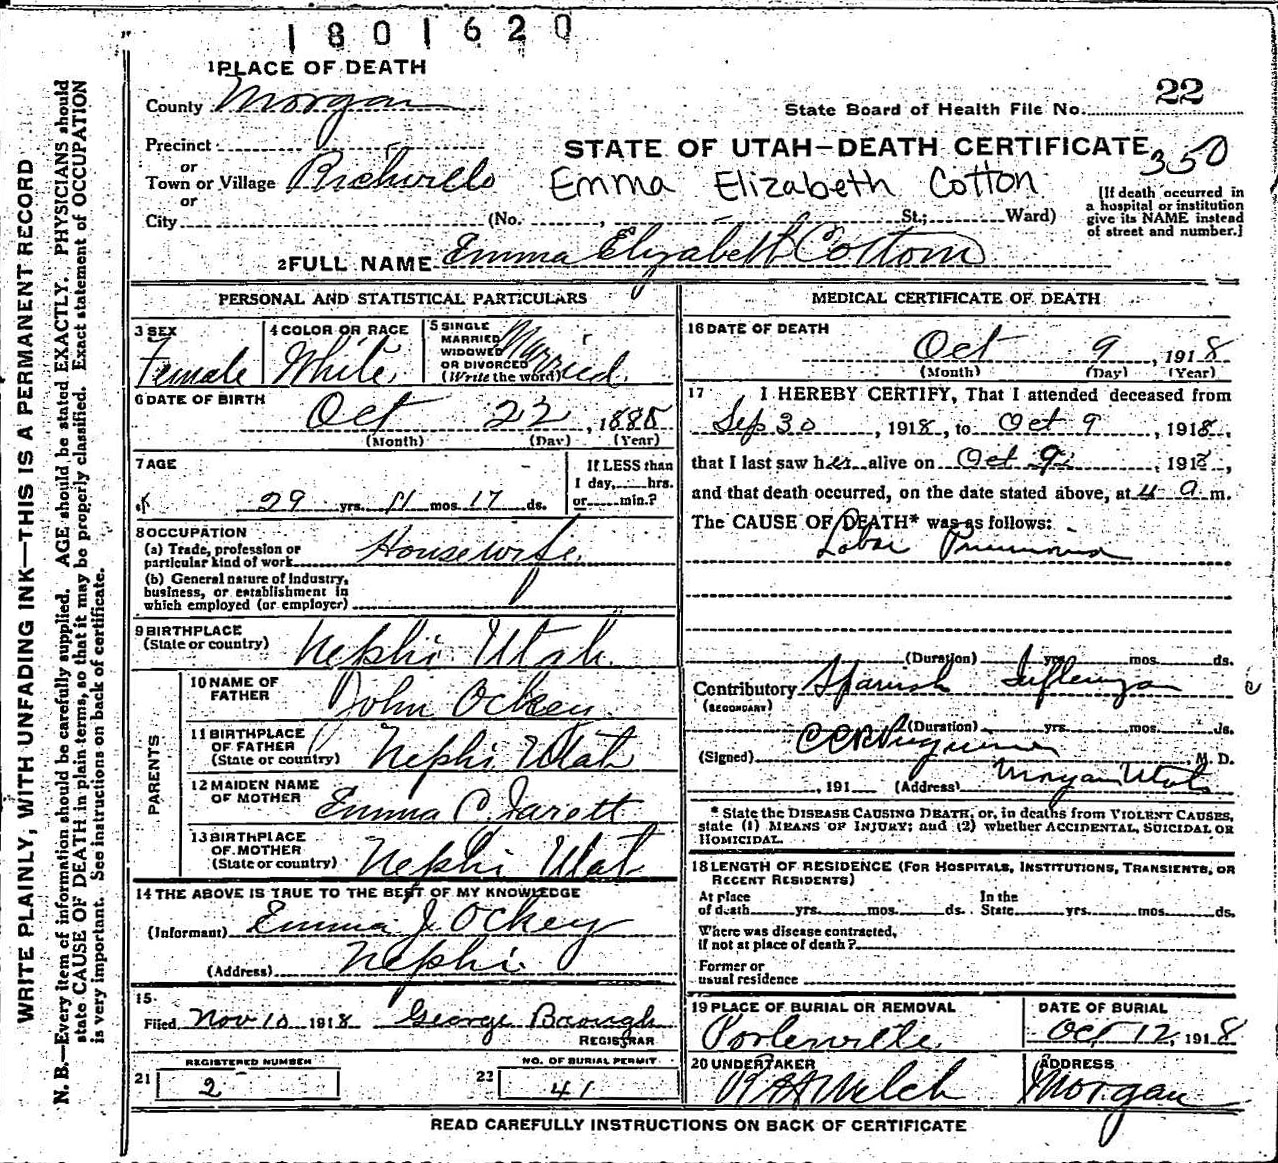 1801620
1 PLACE OF DEATH
County Morgan
22
State Board of Health File No.
Precinct
or
Town or Village Richville
or
City (No. , St.; Ward)
STATE OF UTAH—DEATH CERTIFICATE
350
Emma Elizabeth Cotton
[If death occurred in
a hospital or institution
give its NAME instead
of street and number.]
2 FULL NAME Emma Elizabeth Cottom
PERSONAL AND STATISTICAL PARTICULARS
3 SEX
Female
4 COLOR OR RACE
White
5 SINGLE
MARRIED
WIDOWED
OR DIVORCED
(Write the word)
Married
6 DATE OF BIRTH
Oct 22, 1888
(Month) (Day) (Year)
7 AGE
29 yrs. 11 mos. 17 ds.
If LESS than
1 day, hrs.
or min.?
8 OCCUPATION
(a) Trade, profession or
particular kind of work Housewife
(b) General nature of industry,
business, or establishment in
which employed (or employer)
9 BIRTHPLACE
(State or country) Nephi Utah
PARENTS
10 NAME OF
FATHER John Ockey
11 BIRTHPLACE
OF FATHER
(State or country) Nephi Utah
12 MAIDEN NAME
OF MOTHER Emma C. Jarett
13 BIRTHPLACE
OF MOTHER
(State or country) Nephi Utah
14 THE ABOVE IS TRUE TO THE BEST OF MY KNOWLEDGE
(Informant) Emma J. Ockey
(Address) Nephi
15.
Filed Nov 10 1918 George Brough
REGISTRAR
REGISTERED NUMBER
21 2
NO. OF BURIAL PERMIT
22 41
MEDICAL CERTIFICATE OF DEATH
16 DATE OF DEATH
Oct 9, 1918
(Month) (Day) (Year)
17 I HEREBY CERTIFY, That I attended deceased from
Sep 30, 1918, to Oct 9, 1918,
that I last saw her alive on Oct 9, 1918,
and that death occurred, on the date stated above, at 4 a m.
The CAUSE OF DEATH* was as follows:
Lobar Pneumonia
(Duration) yrs. mos. ds.
Contributory Spanish Influenza
(SECONDARY)
(Duration) yrs. mos. ds.
(Signed) M. D.
, 191 (Address) Morgan Utah
* State the DISEASE CAUSING DEATH, or, in deaths from VIOLENT CAUSES,
state (1) MEANS OF INJURY; and (2) whether ACCIDENTAL, SUICIDAL OR
HOMICIDAL.
18 LENGTH OF RESIDENCE (FOR HOSPITALS, INSTITUTIONS, TRANSIENTS, OR
RECENT RESIDENTS)
At place
of death yrs. mos. ds.
In the
State yrs. mos. ds.
Where was disease contracted,
if not at place of death?
Former or
usual residence
19 PLACE OF BURIAL OR REMOVAL
Porterville
DATE OF BURIAL
Oct 12, 1918
20 UNDERTAKER
Welch
ADDRESS
Morgan
READ CAREFULLY INSTRUCTIONS ON BACK OF CERTIFICATE
WRITE PLAINLY, WITH UNFADING INK—THIS IS A PERMANENT RECORD
N. B.—Every item of information should be carefully supplied. AGE should be stated EXACTLY. PHYSICIANS should
state CAUSE OF DEATH in plain terms, so that it may be properly classified. Exact statement of OCCUPATION
is very important. See instructions on back of certificate.